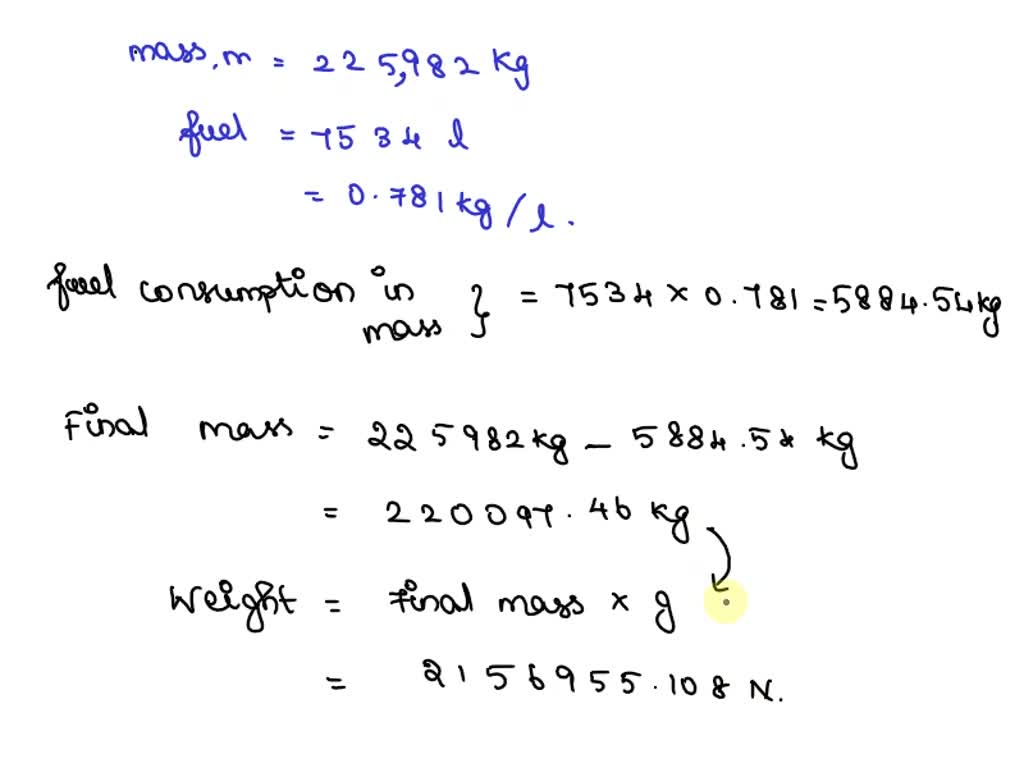 mass, m = 225,982 kg
fuel = 7534 l
= 0.781 kg/l.
fuel consumption in mass } = 7534 × 0.781 = 5884.54 kg
Final mass = 225982 kg - 5884.54 kg
= 220097.46 kg
Weight = final mass × g
= 2156955.108 N.